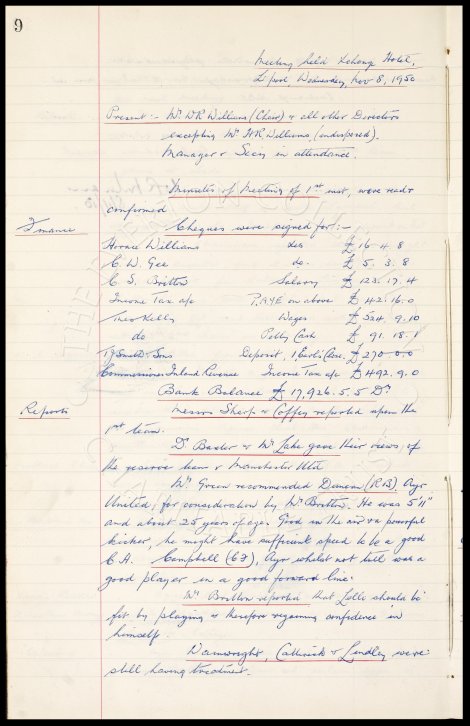 9
Meeting held Exchange Hotel,
L'pool Wednesday, Nov 8, 1950
Present :- Mr. W R Williams (Chair) & all other Directors
excepting Mr. H R Williams, (indisposed).
Manager & Secy in attendance.
Minutes of Meeting of 1st inst, were read &
confirmed
Finance Cheques were signed for :-
Horace Williams £ 16 . 4 . 8
C. W. Gee do. £ 5 . 3 . 8
C. S. Britton Salary £ 123 . 17 . 4
Income Tax a/c PAYE on above £ 42 . 16 . 0
Theo Kelly Wages £ 524 . 9 . 10
do Petty Cash £ 91 . 18 . 1
& Sons Deposit, £ 270 . 0 . 0
Commissioner Inland Revenue Income Tax a/c £ 1492 . 9 . 0
Bank Balance £ 17,926 . 5 . 5 Dr
Reports Messrs Sharp & Coffey reported upon the
1st team.
Dr Baxter & Mr. Lake gave their views of
the reserve team & Manchester Utd
Mr. Green recommended Duncan (R B) Ayr
United, for consideration by Mr. Britton. He was 5' 11"
and about 25 years of age. Good in the air & a powerful
kicker, he might have sufficient speed to be a good
C.H. Campbell (6 7), Ayr whilst not tall was a
good player in a good forward line.
Mr. Britton reported that Lello should be
fit by playing & therefore regaining confidence in
himself.
Wainwright, Catterick & Lindley were
still having treatment.